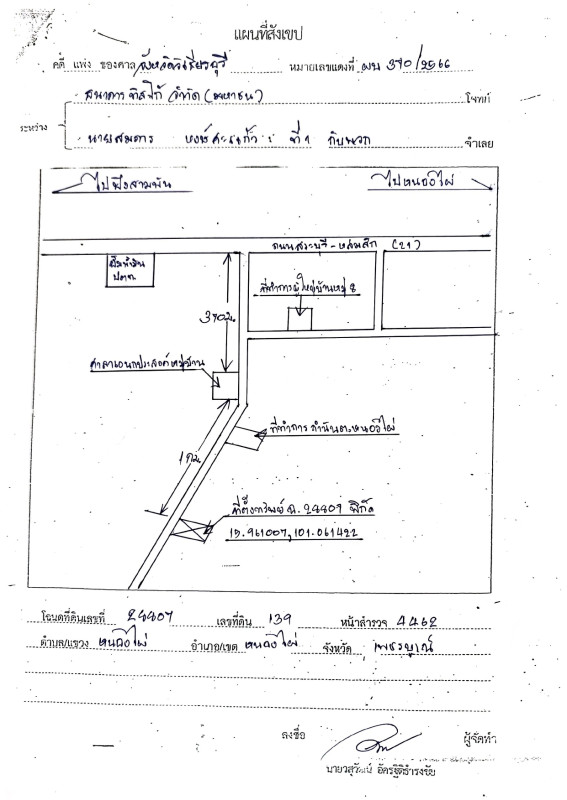 แผนที่สังเขป
คดี แพ่ง ของศาล จังหวัดวิเชียรบุรี หมายเลขแดงที่ ผบ 370/2566
ธนาคารทิสโก้ จำกัด (มหาชน) โจทก์
ระหว่าง
นายสมดาว ที่ 1 กับพวก จำเลย
ไปบึงสามพัน ไปหนองไผ่
ถนนสระบุรี-หล่มสัก (21)
ปั๊มน้ำมัน
ปตท.
ที่ทำการผู้ใหญ่บ้านหมู่ 8
370ม.
ศาลาเอนกประสงค์หมู่บ้าน
ที่ทำการกำนันต.หนองไผ่
1 กม.
ที่ตั้งทรัพย์ ฉ. 24807 พิกัด
15.961007,101.061422
โฉนดที่ดินเลขที่ 24807 เลขที่ดิน 139 หน้าสำรวจ 4462
ตำบล/แขวง หนองไผ่ อำเภอ/เขต หนองไผ่ จังหวัด เพชรบูรณ์
ลงชื่อ ผู้จัดทำ
นายวสุวัฒน์ อัครฐิติธำรงชัย